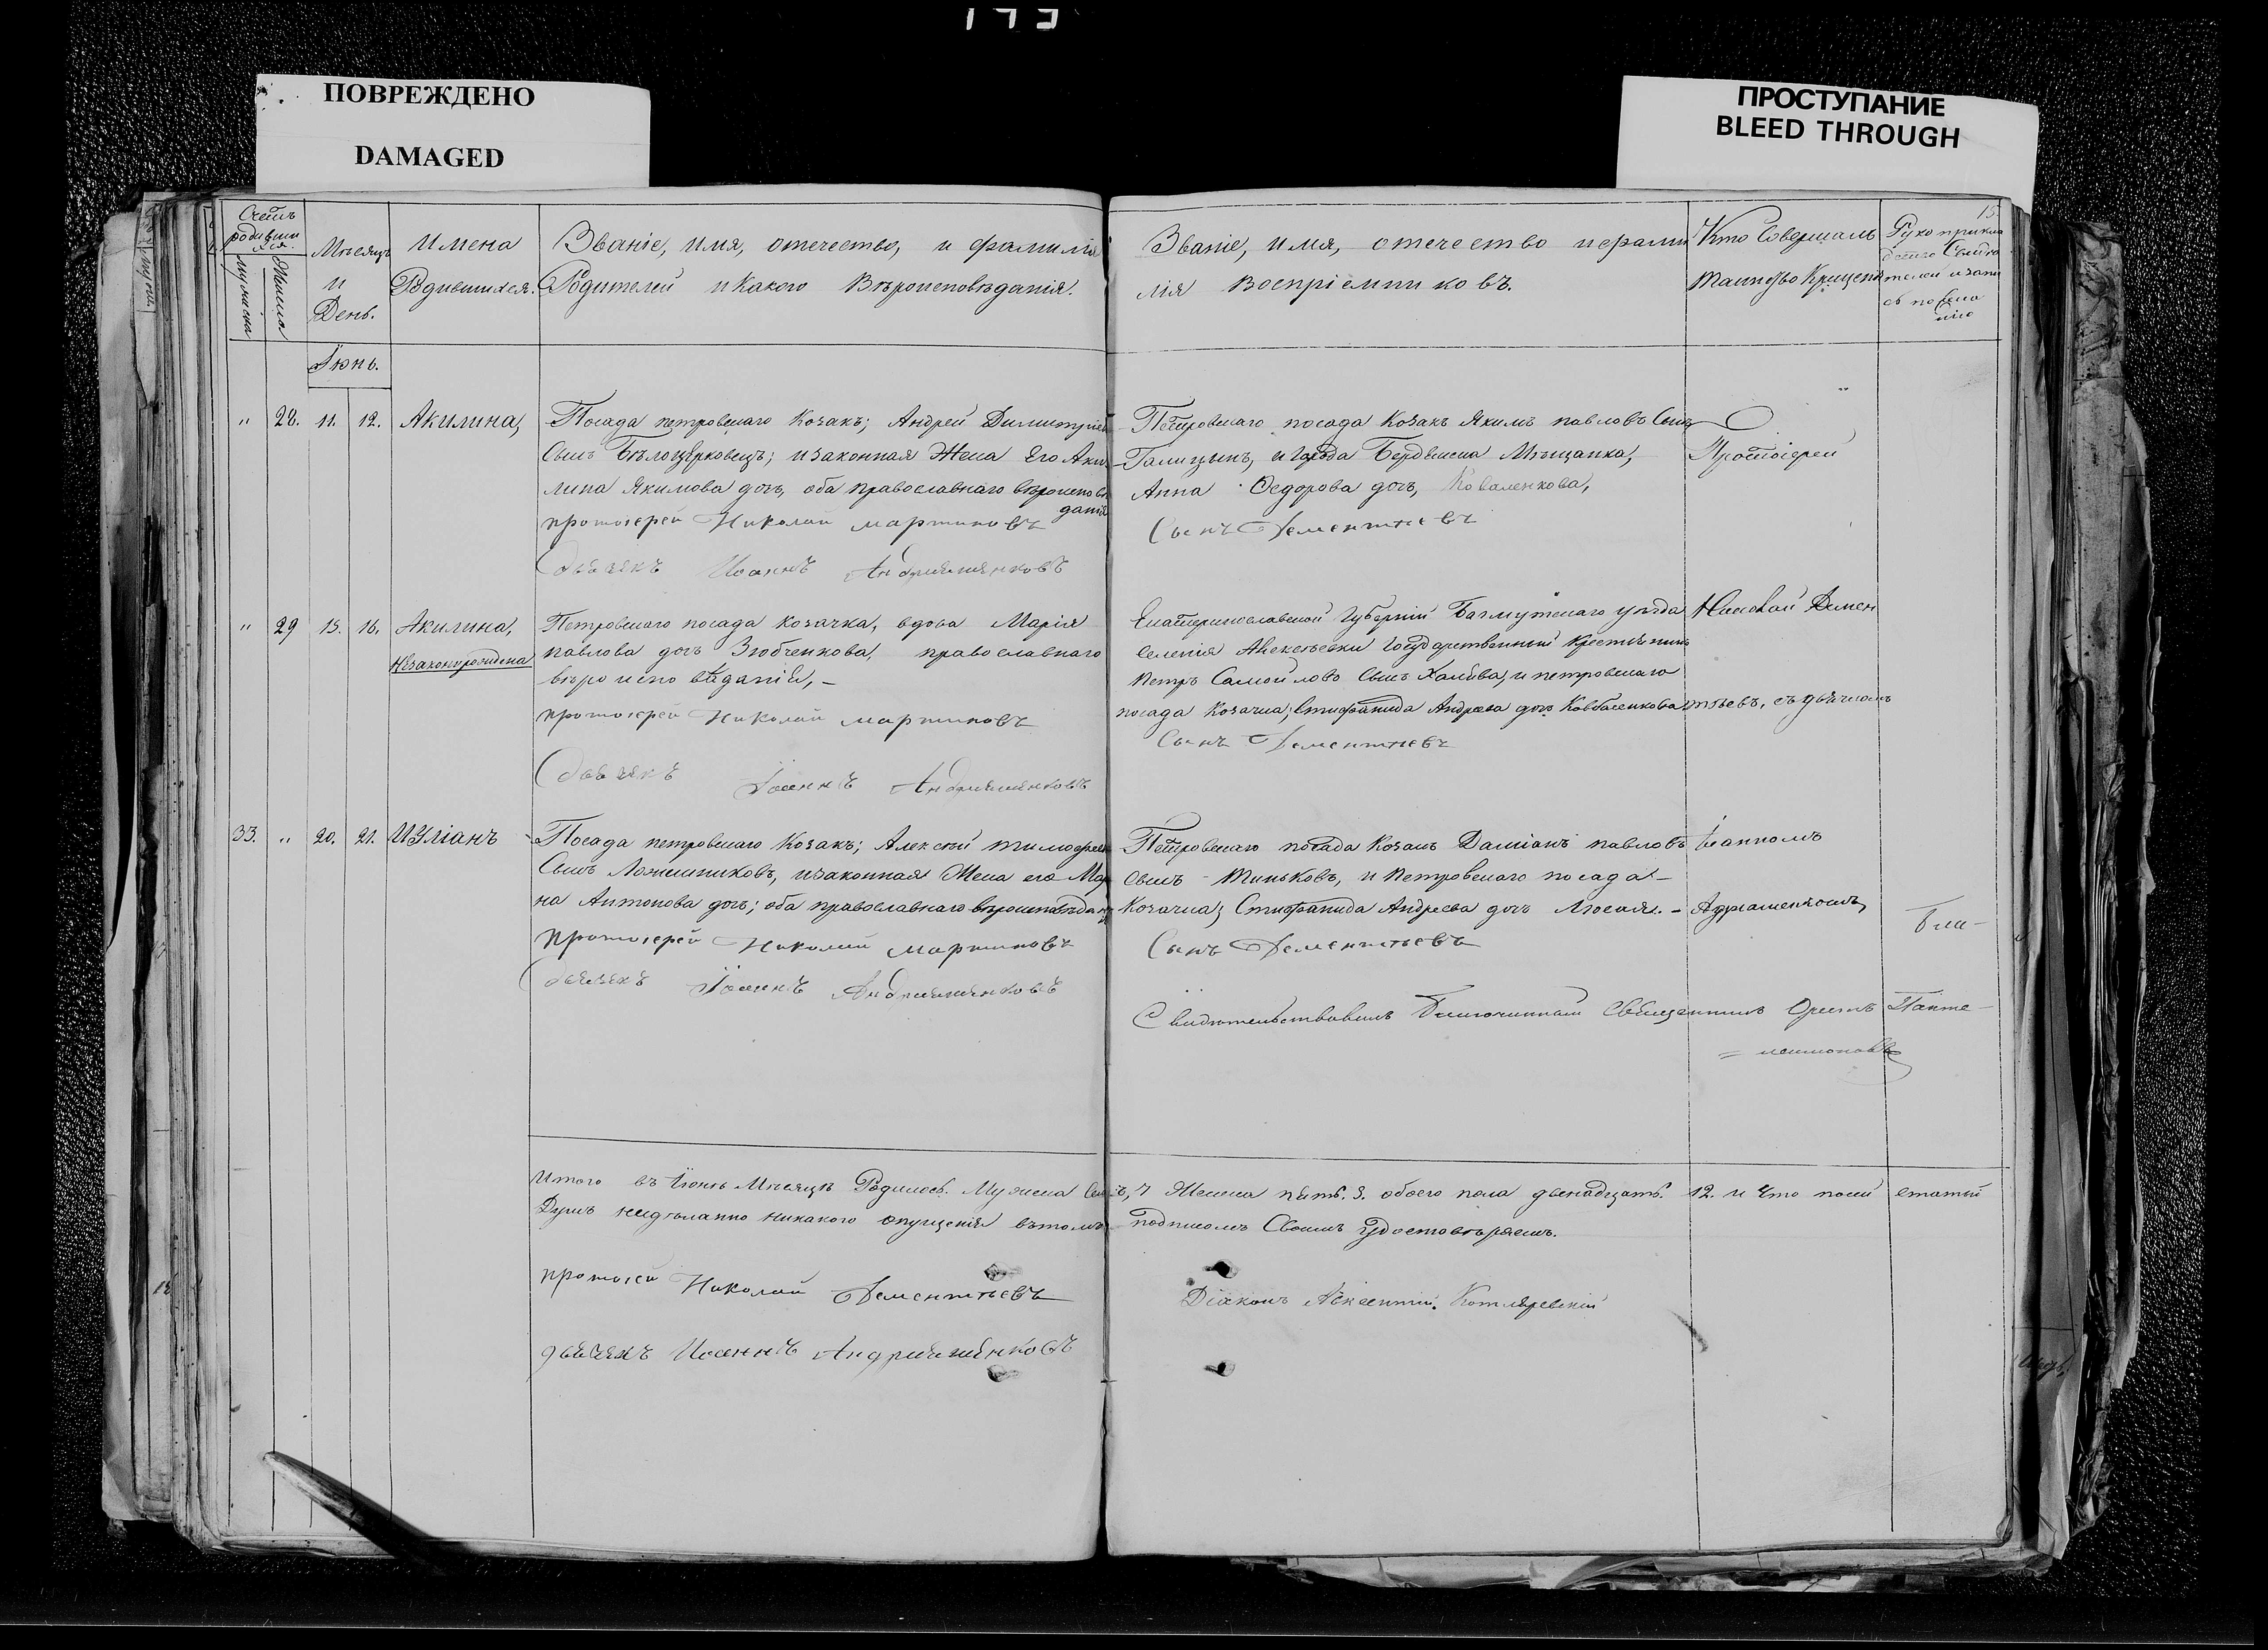 ПОВРЕЖДЕНО
DAMAGED
ПРОСТУПАНИЕ
BLEED THROUGH
15
Счетъ родившихся.
Мужеска
Женска
Мѣсяцъ
и
День.
Имена
Родившихся.
Званіе, имя, отечество, и фамилія
Родителей и какого Вѣроисповѣданія.
Званіе, имя, отечество и фами
лія Воспріемниковъ.
Кто Совершалъ
Таинство Крещенія
Іюнь.
„ 28. 11. 12. Акилина,
Посада петровскаго Козакъ; Андрей Димитріевъ
Сынъ Бѣлоцерковецъ; и законная Жена Его Аки
лина Якимова дочь, оба православнаго вѣроисповѣ
данія
протоіерей Николай мартиновъ
дьячекъ Иоаннъ Андрияшенковъ
Петровскаго посада Козакъ Якимъ павловъ Сынъ
Галицынъ, и города Бердянска Мѣщанка,
Анна Федорова дочь, Коваленкова,
Сынъ Дементьевъ
Протоіерей
„ 29 15. 16. Акилина,
Незаконорождена
Петровскаго посада козачка, вдова Марія
павлова дочь Зюбченкова, православнаго
вѣроисповѣданія, -
протоіерей Николай мартиновъ
дьячекъ Іоаннъ Андрияшенковъ
Екатеринославской Губерніи Бахмутскаго уѣзда
селенія Государственный крестьянинъ
Петръ Самойловъ Сынъ и петровскаго
посада Козачка; Стифанида Андреева дочь Ковбасенкова
Сынъ Дементьевъ
Николай Демен
тьевъ, съ дьячкомъ
33. „ 20. 21. Иуліанъ
Посада петровскаго Козакъ; Алексѣй тимофеевъ
Сынъ Ложешниковъ, и законная Жена его Мар
на Антонова дочь; оба православнаго вѣроисповѣдан
протоіерей Николай мартиновъ
дьячекъ Іоаннъ Андрияшенковъ
Петровскаго посада Козакъ Даміанъ павловъ
сынъ Тиньковъ, и петровскаго посада -
Козачка; Стифанида Андреева дочь -
Сынъ Дементьевъ
Іоанномъ
Адріашенкомъ,
Свидѣтельствовалъ Благочинный Священникъ Орестъ Панте-
= леимоновъ
Итого въ Іюнѣ Мѣсяцѣ Родилось. Мужеска Семь, 7 Женска пять. 5. обоего пола двенадцать. 12. и что посей статьи
Душъ неидѣланно никакого опущенія въ томъ подписомъ Своимъ Удостовѣряемъ.
протоіей Николай Дементьевъ
Діаконъ Котляревскій
дьячекъ Иоаннъ Андрияшенковъ